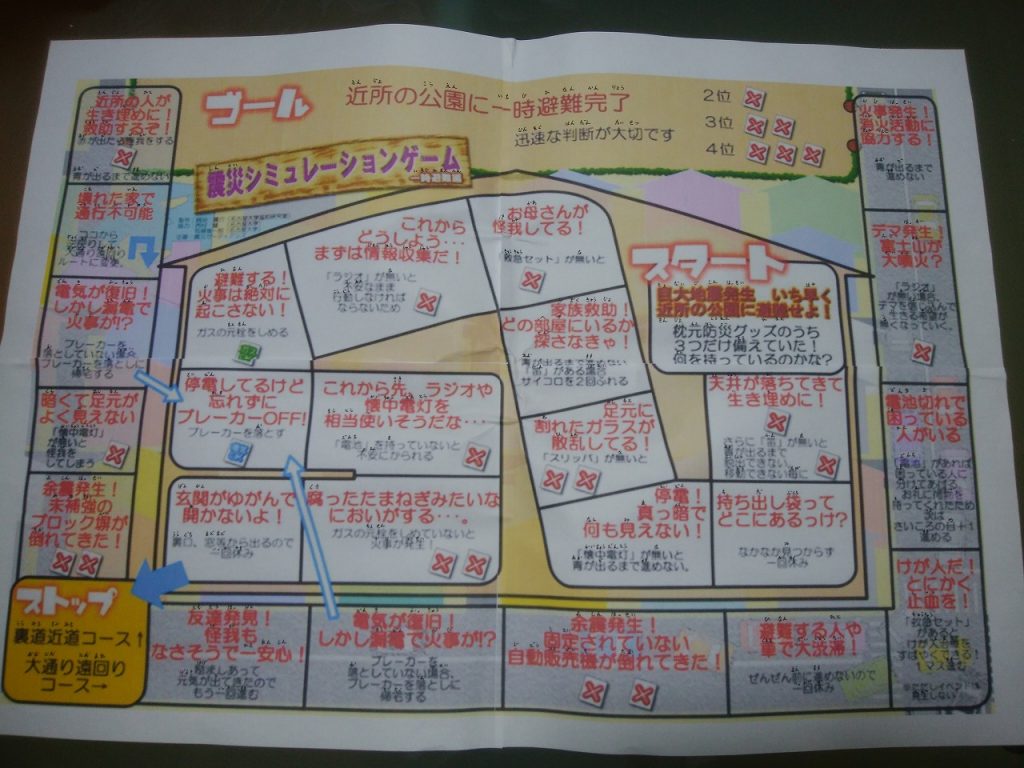 ゴール
近所の公園に一時避難完了
迅速な判断が大切です
2位
3位
4位
震災シミュレーションゲーム
スタート
巨大地震発生 いち早く
近所の公園に避難せよ！
枕元防災グッズのうち
3つだけ備えていた！
何を持っているのかな？
天井が落ちてきて
生き埋めに！
さらに「笛」が無いと
持ち出し袋って
どこにあるっけ？
なかなか見つからず
一回休み
停電！
真っ暗で
何も見えない！
「懐中電灯」が無いと
青が出るまで進めない。
足元に
割れたガラスが
散乱してる！
「スリッパ」が無いと
家族救助！
どの部屋にいるか
探さなきゃ！
青が出るまで進めない
「笛」がある場合
サイコロを2回ふれる
お母さんが
怪我してる！
「救急セット」が無いと
これから
どうしよう…
まずは情報収集だ！
「ラジオ」が無いと
不安なまま
行動しなければ
ならないため
避難する！
火事は絶対に
起こさない！
ガスの元栓をしめる
停電してるけど
忘れずに
ブレーカーOFF！
ブレーカーを落とす
これから先、ラジオや
懐中電灯を
相当使いそうだな…
「電池」を持っていないと
不安にかられる
腐ったたまねぎみたいな
においがする…。
ガスの元栓をしめていないと
火事が発生！
玄関がゆがんで
開かないよ！
裏口、窓等から出るので
一回休み
ストップ
裏道近道コース↑
大通り遠回り
コース→
余震発生！
未補強の
ブロック塀が
倒れてきた！
暗くて足元が
よく見えない
「懐中電灯」
が無いと
怪我を
してしまう
電気が復旧！
しかし漏電で
火事が!?
ブレーカーを
落としていない場合、
ブレーカーを落としに
帰宅する
壊れた家で
通行不可能
ココから
ルートに変更。
近所の人が
生き埋めに！
救助するぞ！
青が出るまで進めない
友達発見！
怪我も
なさそうで一安心！
励ましあって
元気が出てきたので
もう一回進む
電気が復旧！
しかし漏電で火事が!?
ブレーカーを
落としていない場合、
ブレーカーを落としに
帰宅する
余震発生！
固定されていない
自動販売機が倒れてきた！
避難する人や
車で大渋滞！
ぜんぜん前に進めないので
一回休み
けが人だ！
とにかく
止血を！
「救急セット」
があると
電池切れで
困っている
人がいる
「電池」があれば
困っている人に
分けてあげる。
デマ発生！
富士山が
大噴火？
「ラジオ」
が無い場合、
デマを信じ込んで
火事発生！
消火活動に
協力する！
青が出るまで
進めない